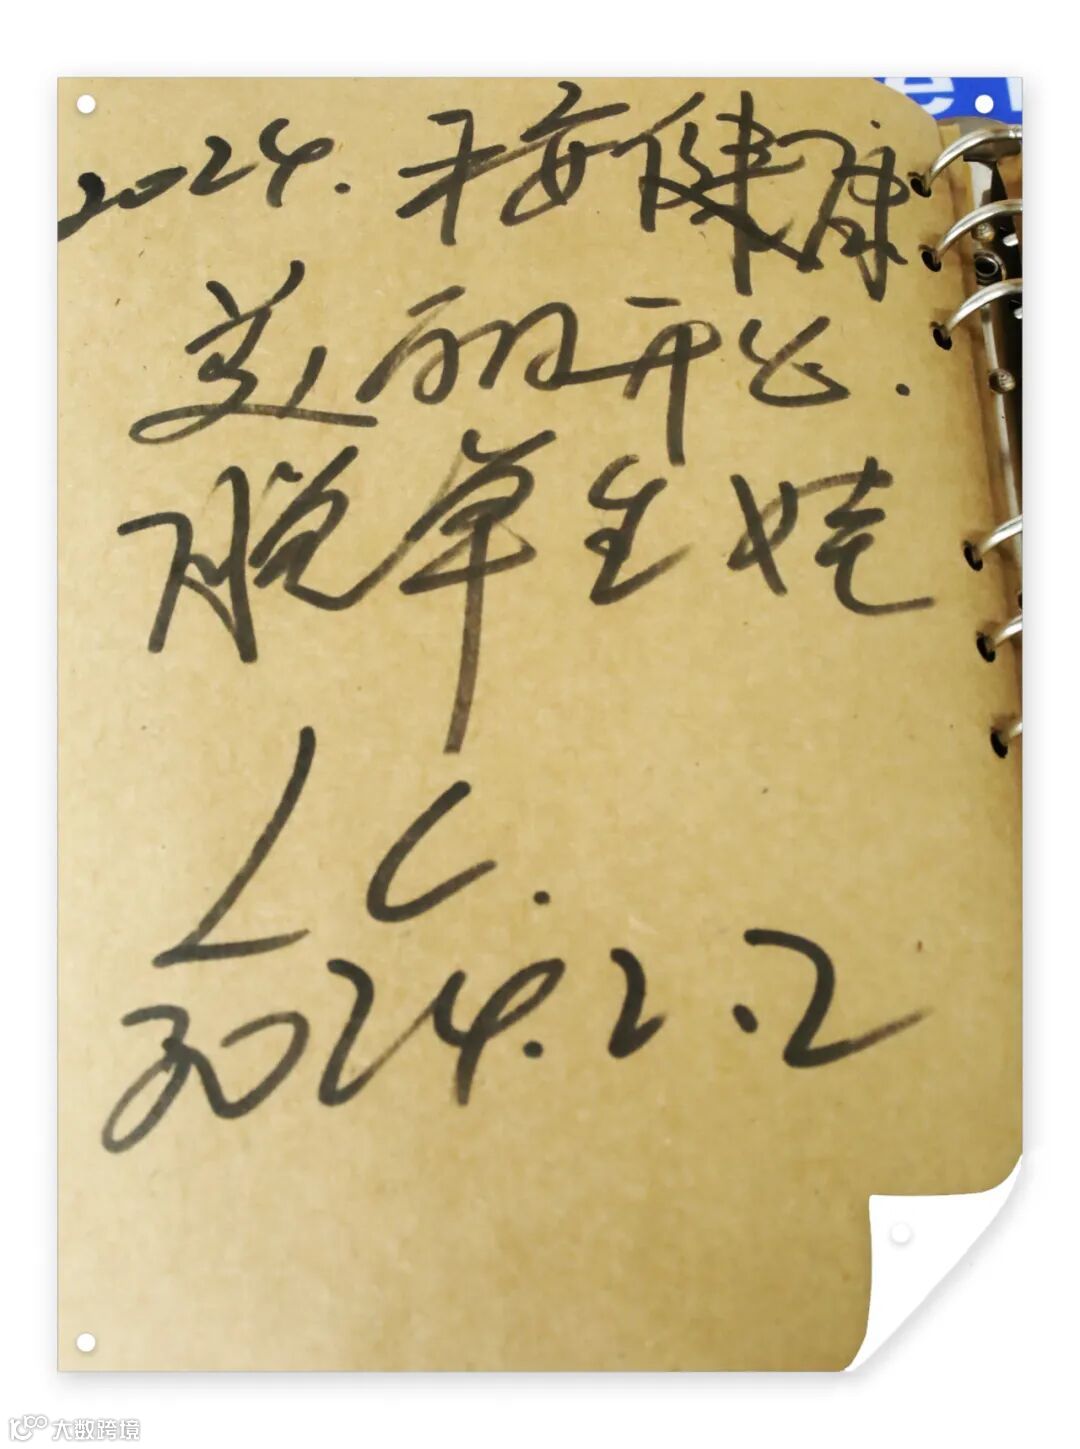 2024. 平安健康
美丽开心.
脱单生娃
LC.
2024.2.2
大数跨境